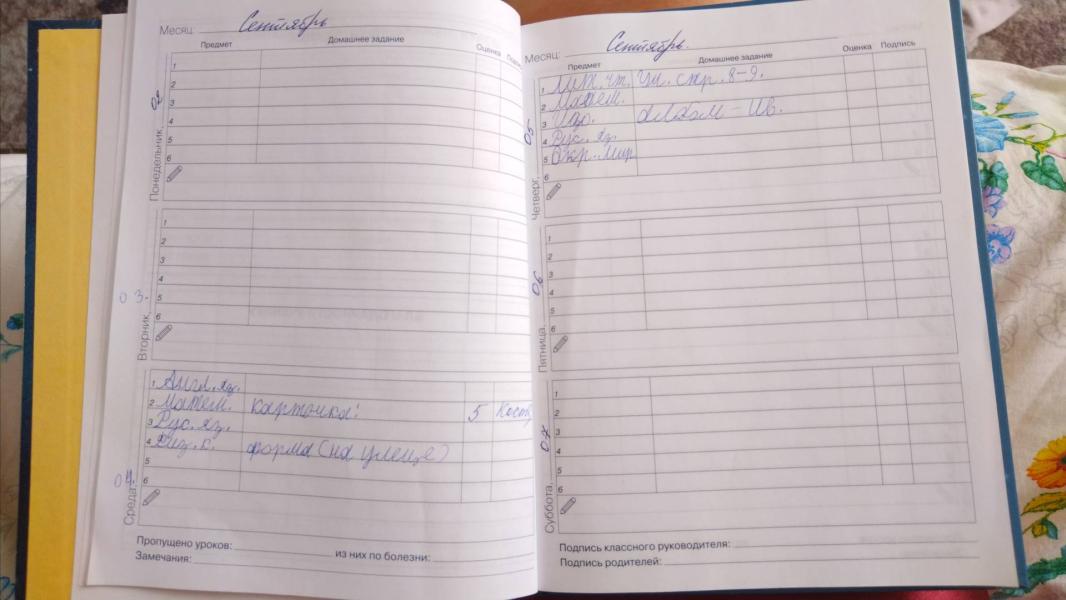 Месяц: Сентябрь
Предмет Домашнее задание Оценка
Понедельник, 02
1
2
3
4
5
6
Вторник, 03.
1
2
3
4
5
6
Среда, 04.
1 Англ. яз.
2 Матем. карточка! 5
3 Рус. яз.
4 Физ. к. форма (на улеце)
5
6
Пропущено уроков: из них по болезни:
Замечания:
Месяц: Сентябрь.
Предмет Домашнее задание Оценка Подпись
Четверг, 05
1 Лит. чт. Уч. стр. 8-9.
2 Матем.
3 альбом - Ив.
4 Рус. яз.
5 Окр. Мир
6
Пятница, 06
1
2
3
4
5
6
Суббота, 07
1
2
3
4
5
6
Подпись классного руководителя:
Подпись родителей: